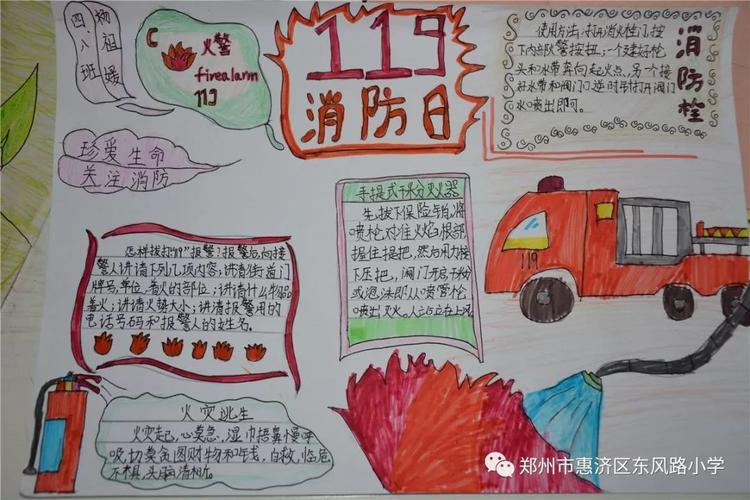 四.八班
火警
firealarm
119
119
消防日
消防栓
使用方法:打开消火栓门,按
下内部火警按钮,一个建好枪
头和水带奔向起火点,另一个接
好水带和阀门逆时针打开阀门
水喷出即可。
珍爱生命
关注消防
手提式干粉灭火器
先拔下保险销,将
喷枪对住火焰根部
握住提把,然后用力按
下压把,阀门开启干粉
或泡沫即从喷管枪
喷出灭火。人应站在上风
怎样拨打119"报警?报警后,向接
警人讲清下列几项内容,讲清街道门
牌号,单位,着火的部位;讲清什么物品
着火;讲清火势大小;讲清报警用的
电话号码和报警人的姓名。
119
火灾逃生
火灾起,心莫急,湿巾捂鼻慢呼
吸,切莫贪图财物和工钱,自救,临危
不惧,头脑清
郑州市惠济区东风路小学